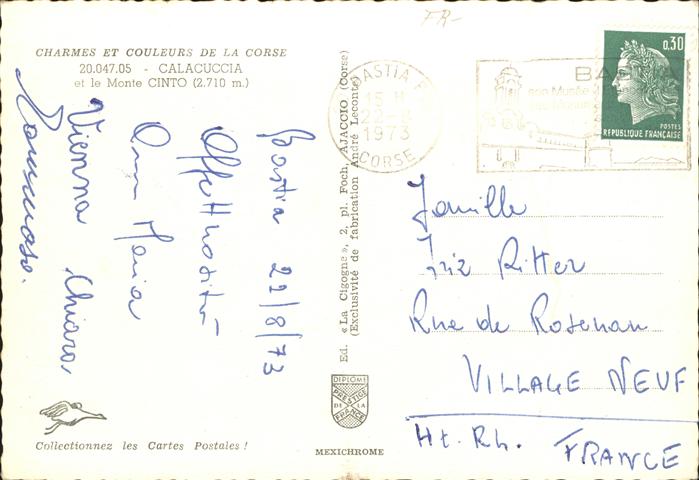 FR-
CHARMES ET COULEURS DE LA CORSE
20.047.05 - CALACUCCIA
et le Monte CINTO (2.710 m.)
Bastia 22/8/73
Anna Maria
Vienna Chiara,
Tommaso.
Collectionnez les Cartes Postales !
Ed. « La Cigogne », 2, pl. Foch, AJACCIO (Corse)
(Exclusivité de fabrication André Leconte)
DIPLOME
PRESTIGE
DE LA
FRANCE
MEXICHROME
BASTIA
15 H
1973
CORSE
BASTIA
son Musée
0,30
POSTES
REPUBLIQUE FRANÇAISE
Famille
Ritter
Rue de Rosenau
VILLAGE NEUF
Ht. Rh. FRANCE